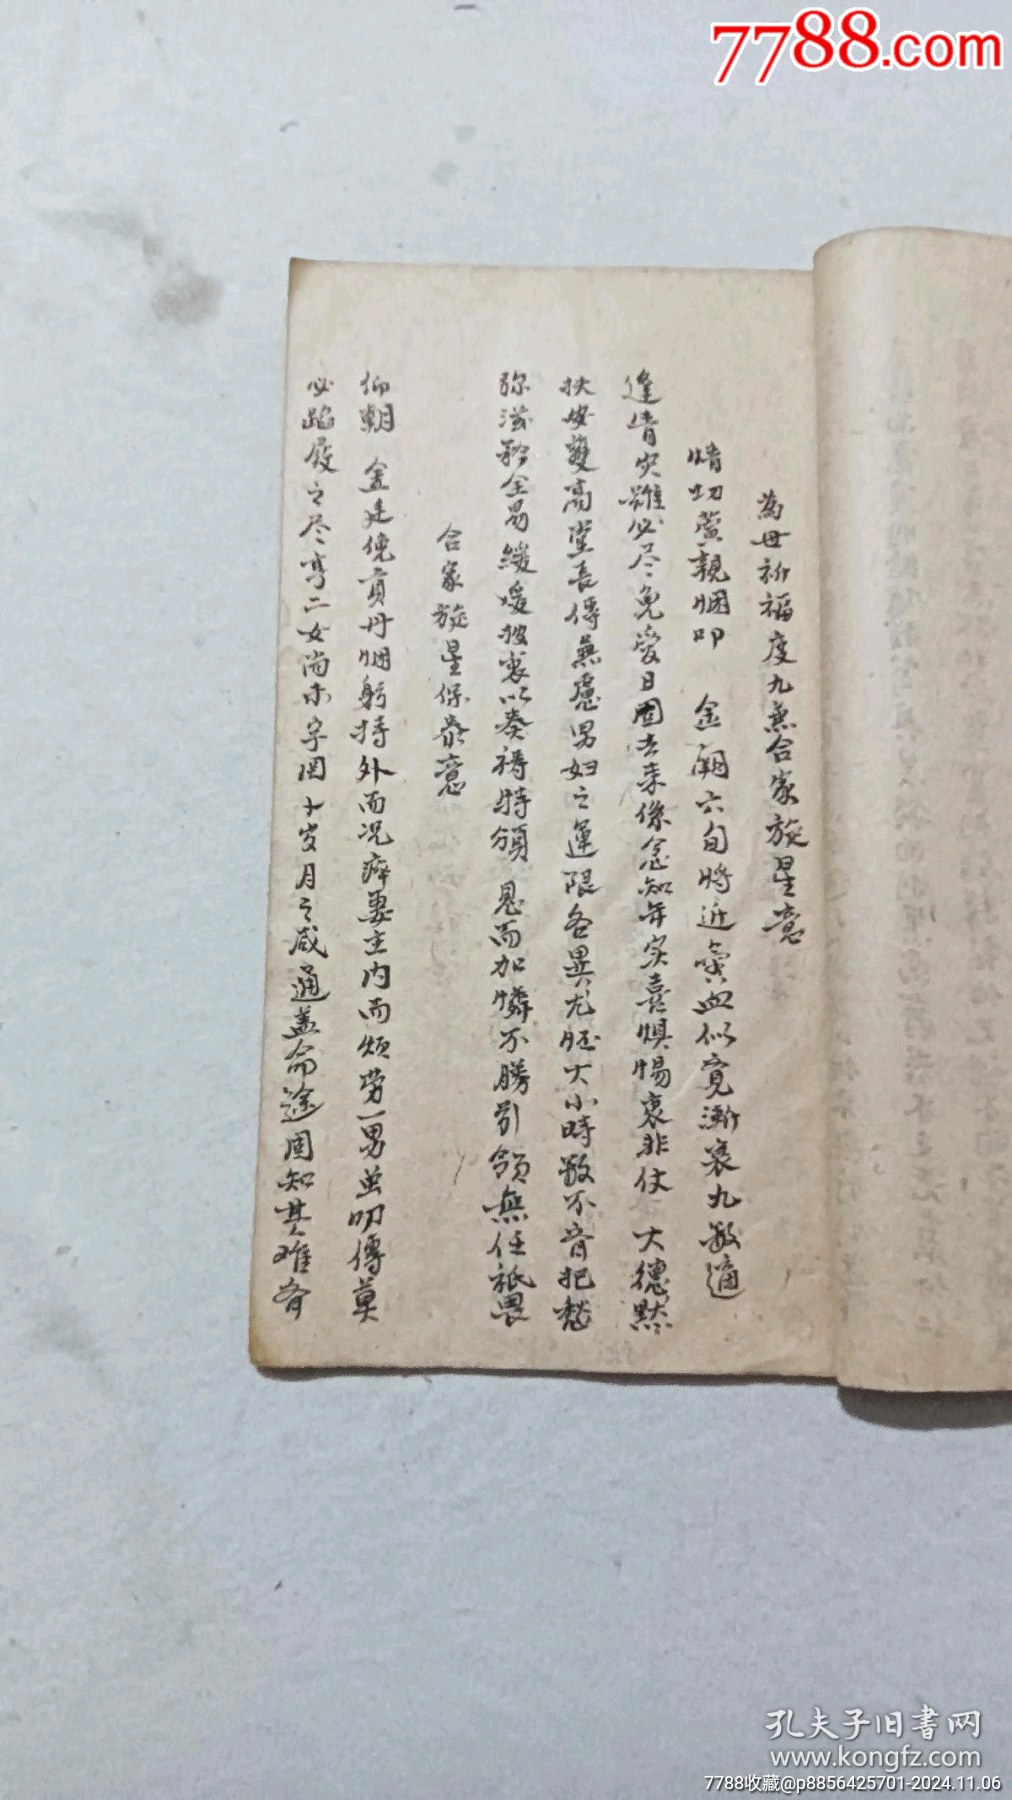 7788.com
為母祈福度九兼合家旋星意
情切萱親烟叩 金闕六旬將近氣血似覺漸衰九数適
逢情災雖必尽免爱日固去来係念知年实喜惧惕衷非仗 大德默
扶安護高堂長傳無慮男妇之運限各異尤胚大小時数不音把愁
弥滋矜全易緩爰披衷以奏禱特頒 恩而加憐不勝引領無任祇畏
合家旋星保泰意
仰朝 金廷俛貢丹烟躬持外而况瘁妻主内而煩劳一男並叨傳莫
必踏履之尽亨二女尚未字因十岁月之咸通盖命途固知其难齊
孔夫子旧書网
www.kongfz.com
7788收藏@p8856425701-2024.11.06